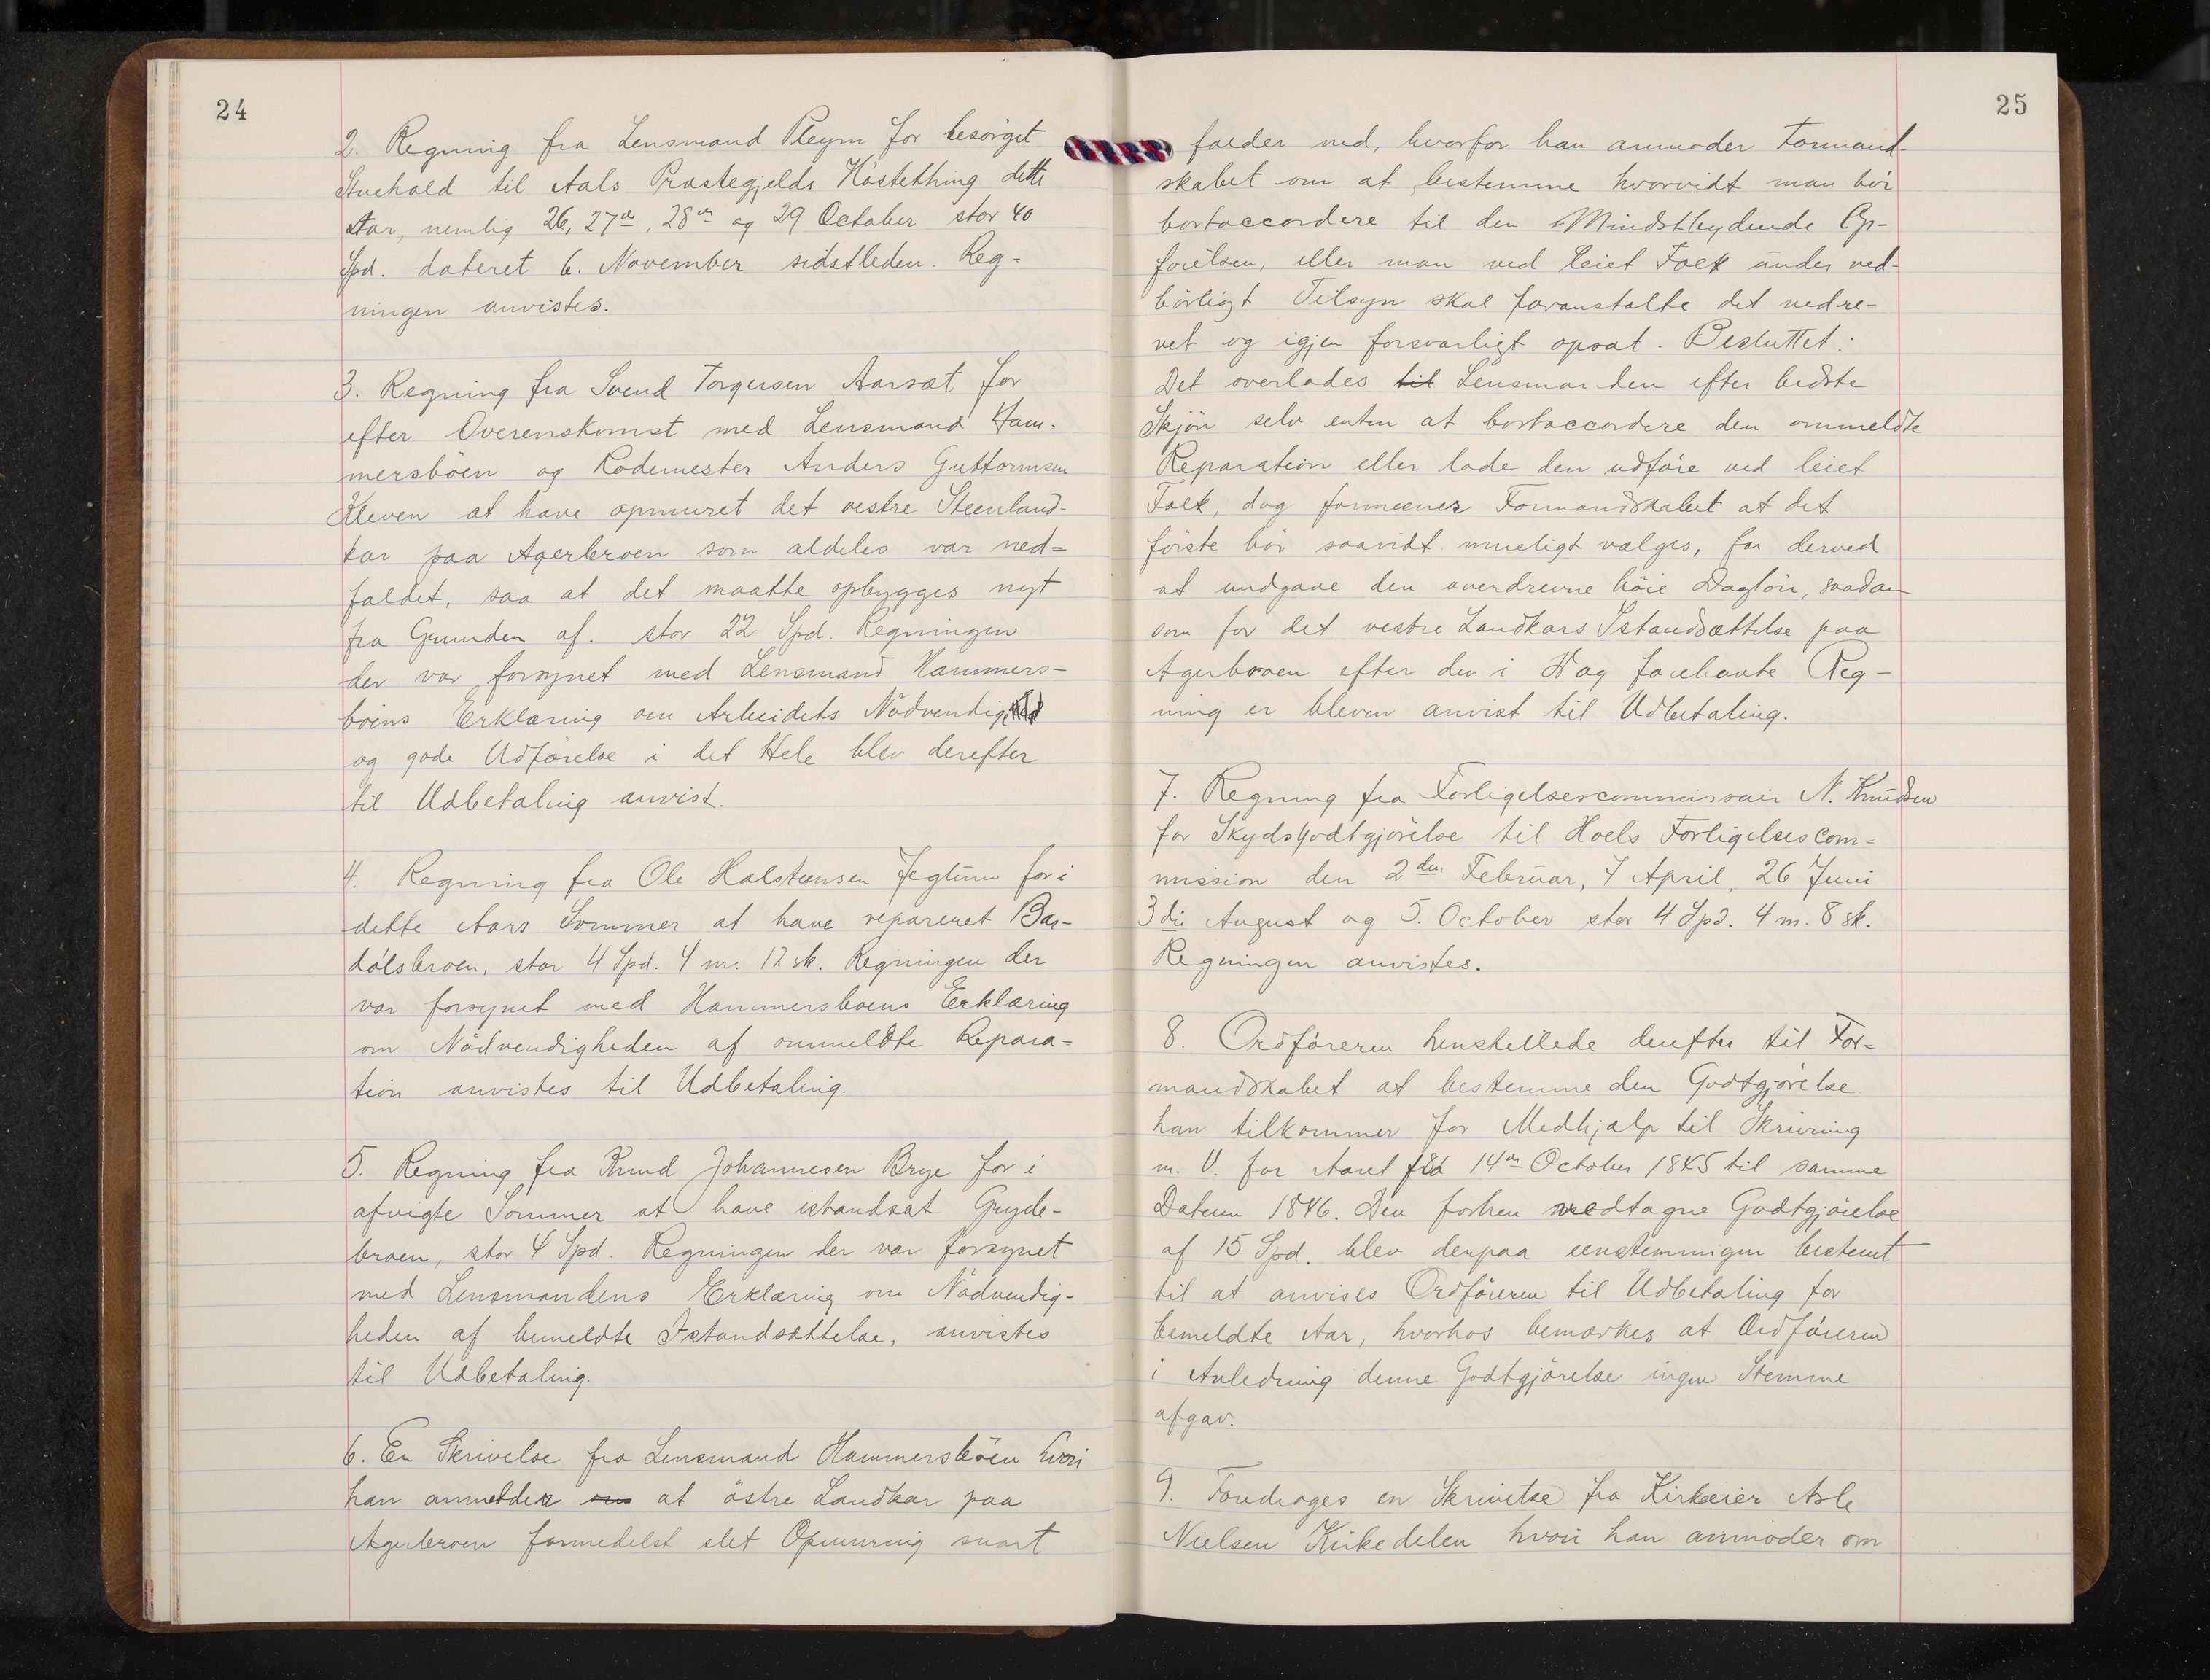 24
2. Regning fra Lensmand Pleym for besörget
Stuehold til Aals Præstegjelds Höstething dette
Aar, nemlig 26, 27de, 28de og 29 October stor 40
Spd. dateret 6. November sidstleden. Reg-
ningen anvistes.
3. Regning fra Svend Torgersen Aarsæt for
efter Overenskomst med Lensmand Ham-
mersböen og Rodemester Anders Guttormsen
Kleven at have opmuret det vestre Steenland-
kar paa Agerbroen som aldeles var ned-
faldet, saa at det maatte opbygges nyt
fra Grunden af. stor 22 Spd. Regningen
der var forsynet med Lensmand Hammers-
böens Erklæring om Arbeidets Nödvendighed
og gode Udförelse i det Hele blev derefter
til Udbetaling anvist.
4. Regning fra Ole Halsteensen Jegtum for i
dette Aars Sommer at have repareret Bar-
dölsbroen, stor 4 Spd. 4 m. 12 sk. Regningen der
var forsynet med Hammersboens Erklæring
om Nödvendigheden af ommeldte Repara-
tion anvistes til Udbetaling.
5. Regning fra Knud Johannesen Brye for i
afvigte Sommer at have istandsat Gryde-
broen, stor 4 Spd. Regningen der var forsynet
med Lensmandens Erklæring om Nödvendig-
heden af bemeldte Istandsættelse, anvistes
til Udbetaling.
6. En Skrivelse fra Lensmand Hammersböen hvori
han anmelder om at östre Landkar paa
Agerbroen formedelst slet Opmuring snart
25
falder ned, hvorfor han anmoder Formand-
skabet om at bestemme hvorvidt man bör
bortaccordere til den Mindstbydende Op-
förelsen, eller man ved leiet Folk under ved-
börligt Tilsyn skal foranstalte det nedre-
vet og igjen forsvarligt opsat. Besluttet:
Det overlades til Lensmanden efter bedste
Skjön selv enten at bortaccordere den ommeldte
Reparation eller lade den udföre ved leiet
Folk, dog formeener Formandskabet at det
förste bör saavidt mueligt vælges, for derved
at undgaae den overdrevne höie Daglön, saadan
som for det vestre Landkars Istandsættelse paa
Agerbroen efter den i Dag forehavte Reg-
ning er bleven anvist til Udbetaling.
7. Regning fra Forligelsescommissair N. Knudsen
for Skydsgodtgjörelse til Hoels Forligelsescom-
mission den 2den Februar, 7 April, 26 Juni
3die August og 5. October stor 4 Spd. 4 m. 8 sk.
Regningen anvistes.
8. Ordföreren henstillede derefter til For-
mandskabet at bestemme den Godtgjörelse
han tilkommer for Medhjælp til Skrivning
m. V. for Aaret fra 14de October 1845 til samme
Datum 1846. Den forhen vedtagne Godtgjörelse
af 15 Spd. blev derpaa eenstemmigen bestemt
til at anvises Ordföreren til Udbetaling for
bemeldte Aar, hvorhos bemærkes at Ordföreren
i Anledning denne Godtgjörelse ingen Stemme
afgav.
9. Foredroges en Skrivelse fra Kirkeeier Asle
Nielsen Kirkedelen hvori han anmoder om